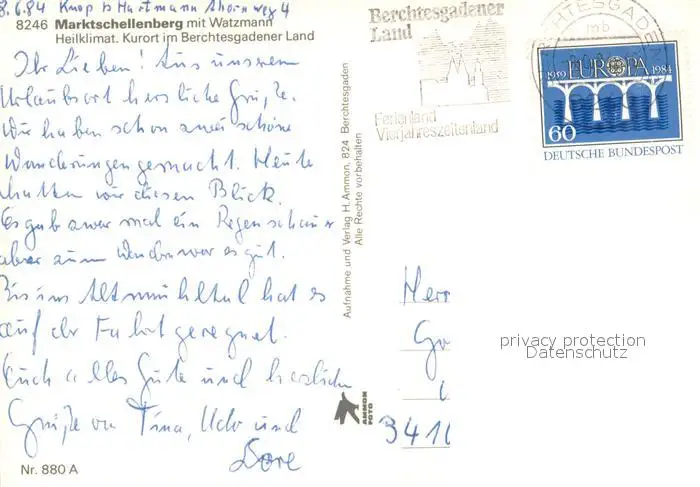 8.6.84 Knop b Hartmann Ahornweg 4
8246 Marktschellenberg mit Watzmann
Heilklimat. Kurort im Berchtesgadener Land
Ihr Lieben! Aus unserem
Urlaubsort herzliche Grüße.
Wir haben schon zwei schöne
Wanderungen gemacht. Heute
hatten wir diesen Blick.
Es gab zwar mal ein Regenschauer
aber zum Wandern war es gut.
Bis ins Altmühltal hat es
auf der Fahrt geregnet.
Euch alles Gute und herzliche
Grüße von Tina, Udo und
Dore
Nr. 880 A
Aufnahme und Verlag H. Ammon, 824 Berchtesgaden
Alle Rechte vorbehalten
AMMON
FOTO
Berchtesgadener
Land
Ferienland
Vierjahreszeitenland
BERCHTESGADEN
mb
1959 EUROPA 1984
60
DEUTSCHE BUNDESPOST
Herr
privacy protection
Datenschutz
341